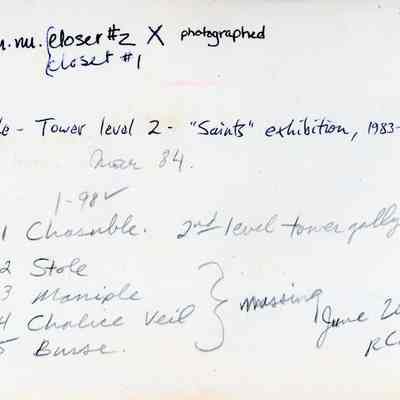 n.nu. { closer #2 X photographed
{ closet #1
le - Tower level 2 - "Saints" exhibition, 1983-
Mar 84.
1-98 ✓
1 Chasuble. 2nd level tower gally
2 Stole
3 Maniple
4 Chalice Veil } missing June 20
5 Burse. RC